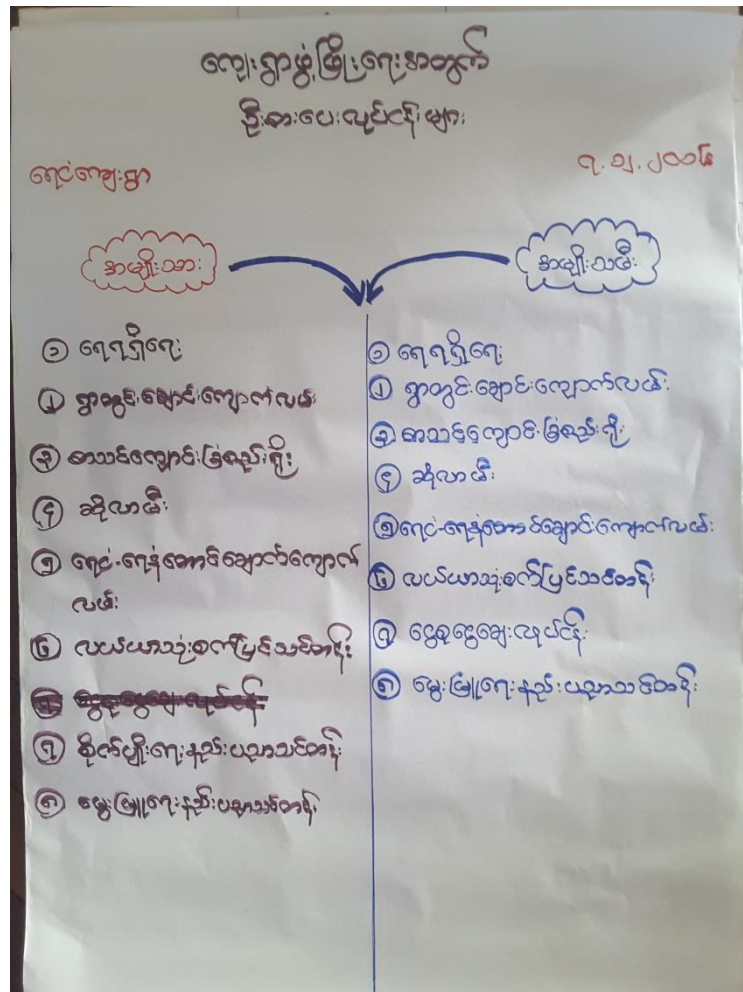 ကျေးရွာဖွံ့ဖြိုးရေးအတွက်
ဦးစားပေးလုပ်ငန်းများ
ရေငံကျေးရွာ
အမျိုးသား
၁ ရေရရှိရေး
၂ ရွာတွင်းချောင်းကျောက်လမ်း
၃ စာသင်ကျောင်းခြံစည်းရိုး
၄ ဆိုလာမီး
၅ ရေငံ-ရေနံတောင်ချောက်ကျောက်
လမ်း
၆ လယ်ယာသုံးစက်ပြင်သင်တန်း
၇ စိုက်ပျိုးရေးနည်းပညာသင်တန်း
၈ မွေးမြူရေးနည်းပညာသင်တန်း
အမျိုးသမီး
၁ ရေရရှိရေး
၂ ရွာတွင်းချောင်းကျောက်လမ်း
၃ စာသင်ကျောင်းခြံစည်းရိုး
၄ ဆိုလာမီး
၅ ရေငံ-ရေနံတောင်ချောင်းကျောက်လမ်း
၆ လယ်ယာသုံးစက်ပြင်သင်တန်း
၇ ငွေစုငွေချေးလုပ်ငန်း
၈ မွေးမြူရေးနည်းပညာသင်တန်း